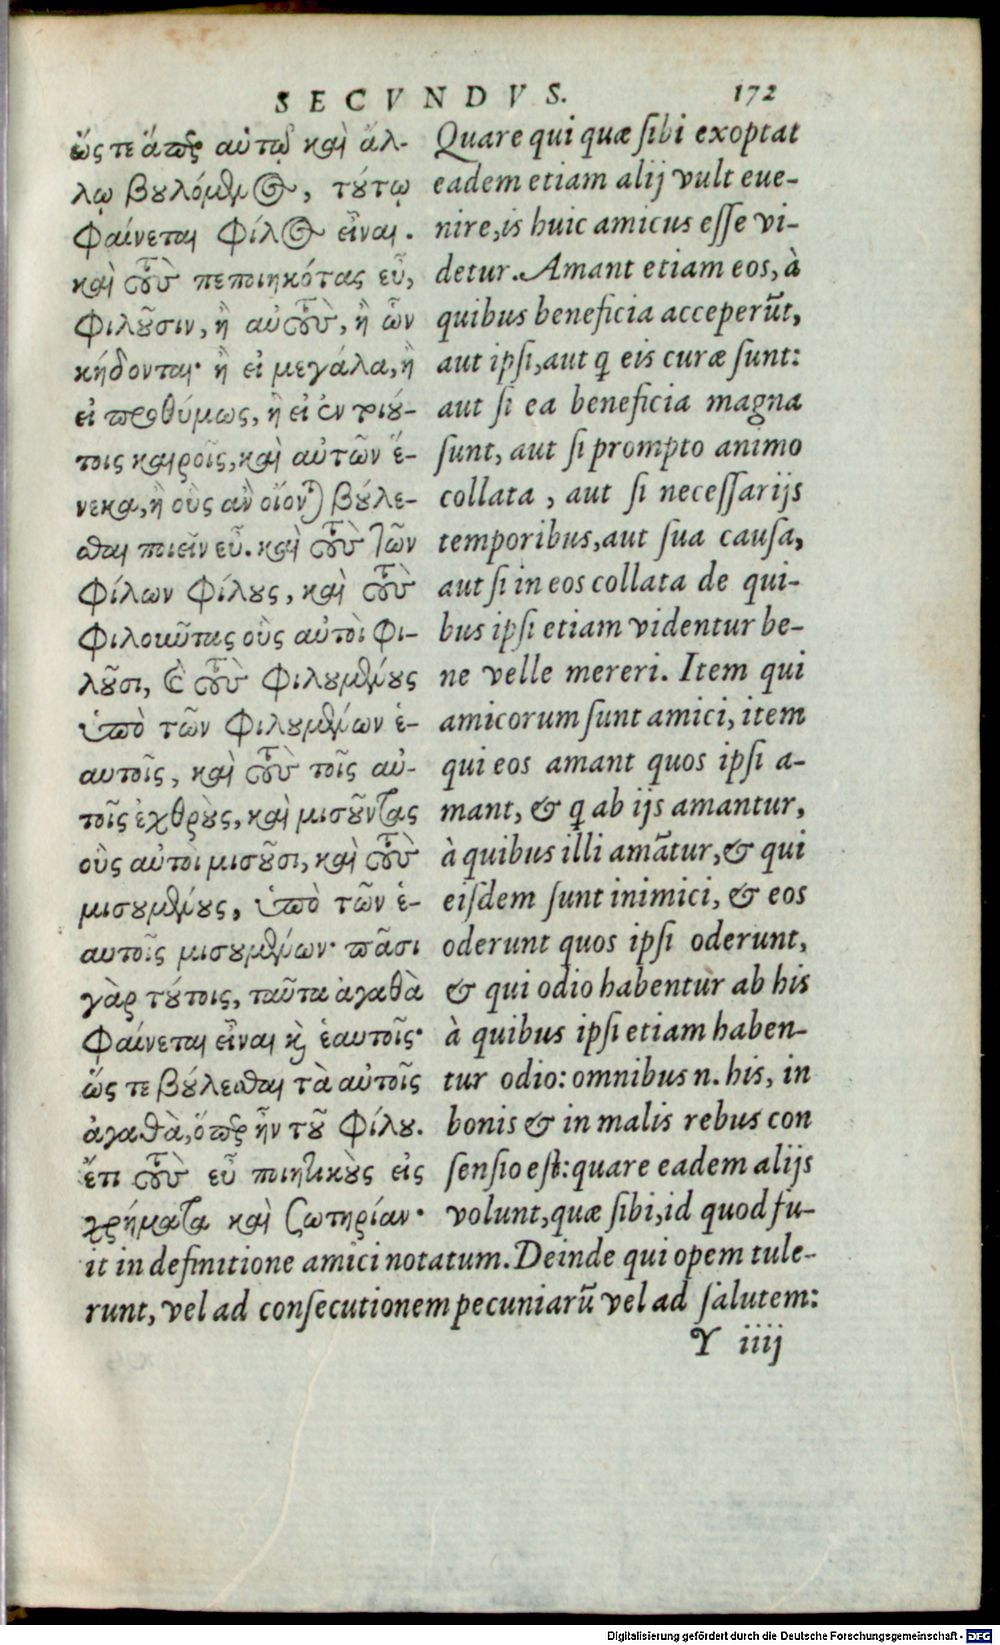 SECVNDVS. 172
ὥς τε ἅπερ αὑτῷ καὶ ἄλ-
λῳ βουλόμενος, τούτῳ
φαίνεται φίλος εἶναι.
καὶ τοὺς πεποιηκότας εὖ,
φιλοῦσιν, ἢ αὐτοὺς, ἢ ὧν
κήδονται· ἢ εἰ μεγάλα, ἢ
εἰ προθύμως, ἢ εἰ ἐν τοιού-
τοις καιροῖς, καὶ αὐτῶν ἕ-
νεκα, ἢ οὓς ἂν οἴονται βούλε-
σθαι ποιεῖν εὖ. καὶ τοὺς τῶν
φίλων φίλους, καὶ τοὺς
φιλοῦντας οὓς αὐτοὶ φι-
λοῦσι, καὶ τοὺς φιλουμένους
ὑπὸ τῶν φιλουμένων ἑ-
αυτοῖς, καὶ τοὺς τοῖς αὐ-
τοῖς ἐχθροὺς, καὶ μισοῦντας
οὓς αὐτοὶ μισοῦσι, καὶ τοὺς
μισουμένους, ὑπὸ τῶν ἑ-
αυτοῖς μισουμένων· πᾶσι
γὰρ τούτοις, ταῦτα ἀγαθὰ
φαίνεται εἶναι καὶ ἑαυτοῖς·
ὥς τε βούλεσθαι τὰ αὐτοῖς
ἀγαθὰ, ὅπερ ἦν τοῦ φίλου.
ἔτι τοὺς εὖ ποιητικοὺς εἰς
χρήματα καὶ σωτηρίαν·
Quare qui quæ sibi exoptat
eadem etiam alij vult eue-
nire, is huic amicus esse vi-
detur. Amant etiam eos, à
quibus beneficia acceperūt,
aut ipsi, aut q̄ eis curæ sunt:
aut si ea beneficia magna
sunt, aut si prompto animo
collata, aut si necessarijs
temporibus, aut sua causa,
aut si in eos collata de qui-
bus ipsi etiam videntur be-
ne velle mereri. Item qui
amicorum sunt amici, item
qui eos amant quos ipsi a-
mant, & q̄ ab ijs amantur,
à quibus illi amātur, & qui
eisdem sunt inimici, & eos
oderunt quos ipsi oderunt,
& qui odio habentur ab his
à quibus ipsi etiam haben-
tur odio: omnibus n. his, in
bonis & in malis rebus con
sensio est: quare eadem alijs
volunt, quæ sibi, id quod fu-
it in definitione amici notatum. Deinde qui opem tule-
runt, vel ad consecutionem pecuniarū vel ad salutem:
Y iiij
Digitalisierung gefördert durch die Deutsche Forschungsgemeinschaft - DFG